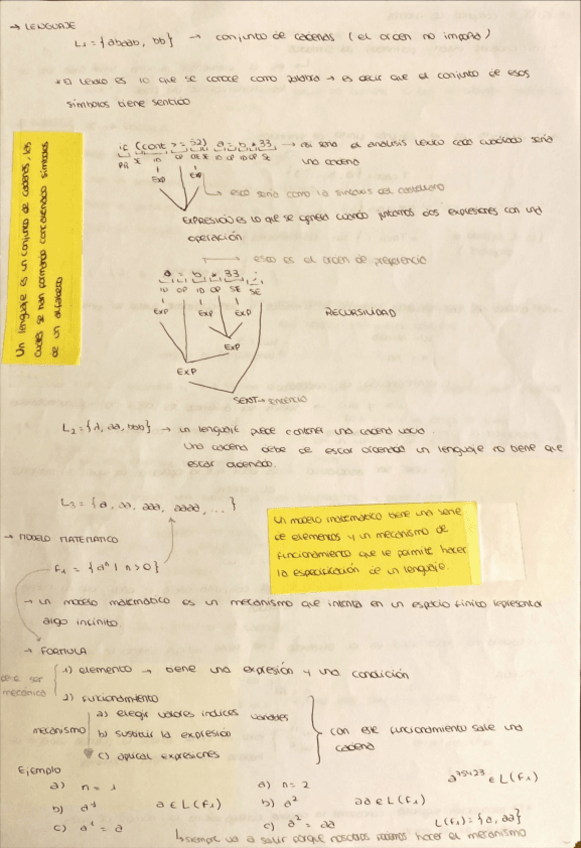 → LENGUAJE
L₁ = {abaab, bb} → conjunto de cadenas (el orden no importa)
* El lexico es lo que se conoce como palabra → es decir que el conjunto de esos
símbolos tiene sentido
Un lenguaje es un conjunto de cadenas, las
cuales se han formando concatenando símbolos
de un alfabeto
if (cont > = 52) a = b * 33 → así sería el análisis lexico cada cuadrado sería
una cadena
PR SE ID OP SE ID OP ID OP SE
EXP EXP
→ esto sería como la sintaxis del castellano
EXPRESIÓN es lo que se genera cuando juntamos dos expresiones con una
operación
→ esto es el orden de preferencia
a = b * 33 ;
ID OP ID OP SE SE
EXP EXP EXP
RECURSIVIDAD
EXP
EXP
SENT → sentencia
L₂ = {λ, aa, bbb} → un lenguaje puede contener una cadena vacía
una cadena debe de estar ordenada un lenguaje no tiene que
estar ordenado.
L₃ = {a, aa, aaa, aaaa, ...}
Un modelo matemático tiene una serie
de elementos y un mecanismo de
funcionamiento que le permite hacer
la especificación de un lenguaje.
→ MODELO MATEMÁTICO
F₁ = {aⁿ | n > 0}
→ un modelo matemático es un mecanismo que intenta en un espacio finito representar
algo infinito.
→ FORMULA
debe ser
mecánico
1) elemento → tiene una expresión y una condición
2) funcionamiento
mecanismo
a) elegir valores indices variables
b) sustituir la expresión
c) aplicar expresiones
con este funcionamiento sale una
cadena
Ejemplo
a) n = 1
b) a¹ a ∈ L(F₁)
c) a¹ = a
a) n = 2
b) a² aa ∈ L(F₁)
c) a² = aa
a⁷⁵⁴²³ ∈ L(F₁)
L(F₁) = {a, aa}
↳ siempre va a salir porque nosotros podemos hacer el mecanismo